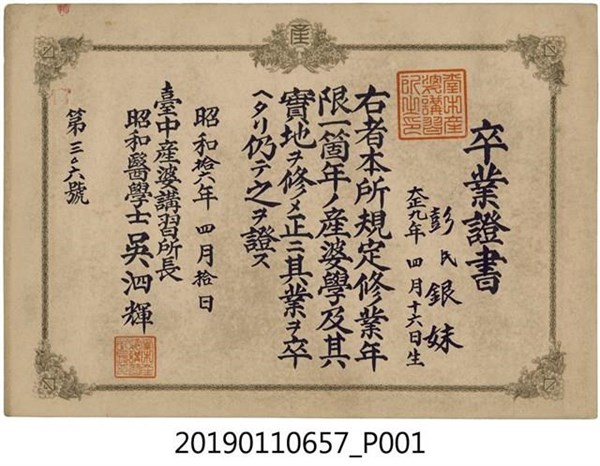 産
卒業證書
彭氏銀妹
大正九年 四月十六日生
右者本所規定修業年
限一箇年ノ産婆學及其
實地ヲ修メ正ニ其業ヲ卒
ヘタリ仍テ之ヲ證ス
昭和拾六年 四月拾日
臺中産婆講習所長
昭和醫學士 吳泗輝
第三〇六號
臺中産婆講習所之印
20190110657_P001